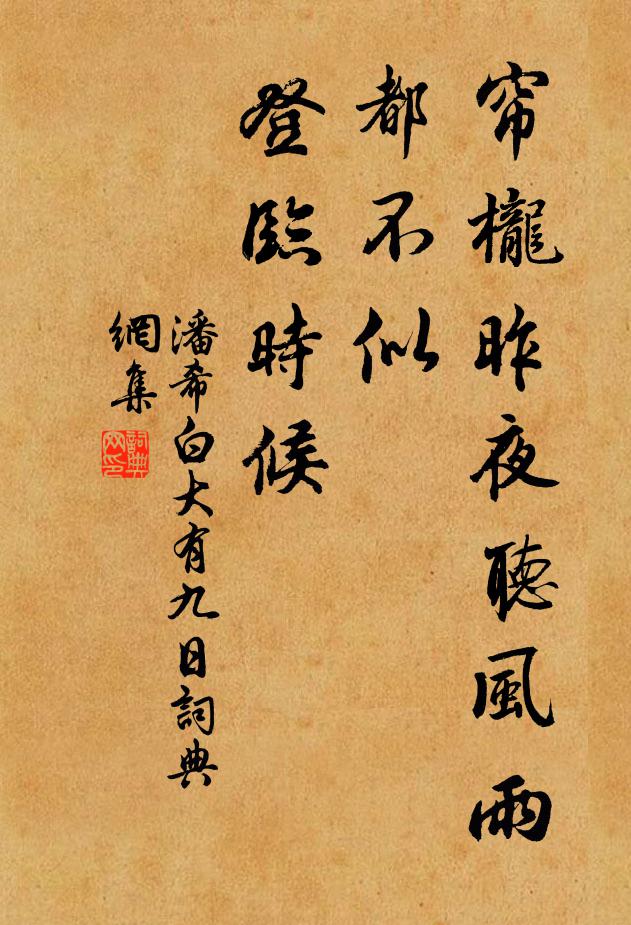 帘櫳昨夜聽風雨
都不似
登臨時候
潘希白大有九日詞典
網集
詞典
网印